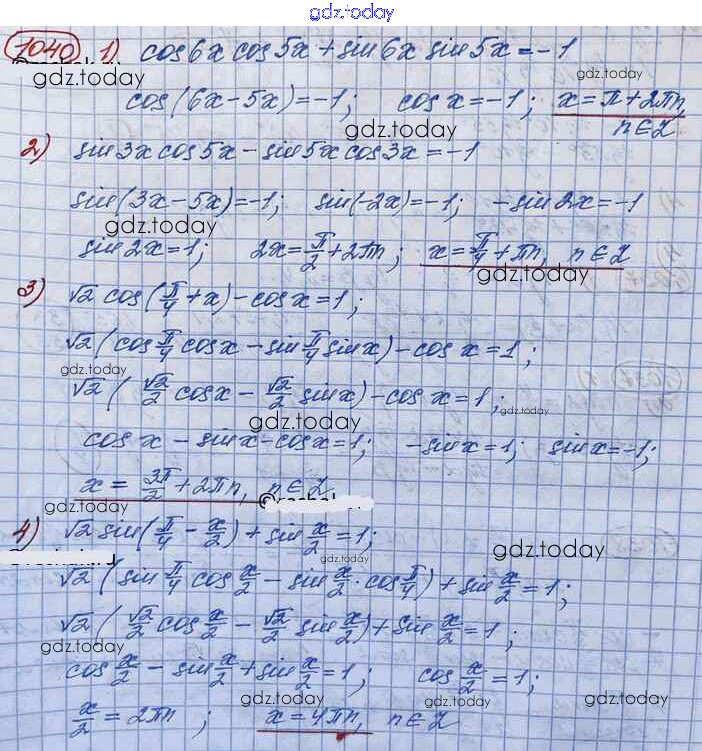 gdz.today
1040 1) cos6x cos5x + sin6x sin5x = -1
gdz.today gdz.today
cos(6x-5x)=-1; cos x=-1; x=π+2πn,
gdz.today n∈Z
2) sin3x cos5x - sin5x cos3x = -1
sin(3x-5x)=-1; sin(-2x)=-1; -sin2x=-1
gdz.today
sin2x=1; 2x=π/2+2πn; x=π/4+πn, n∈Z
gdz.today
3) √2 cos(π/4+x)-cosx=1;
√2(cos π/4 cosx - sin π/4 sinx)-cos x=1;
gdz.today
√2(√2/2 cosx - √2/2 sinx)-cos x=1;
gdz.today gdz.today
cos x - sinx-cosx=1; -sinx=1; sinx=-1;
x=3π/2+2πn, n∈Z
gdz.today
4) √2 sin(π/4 - x/2)+sin x/2=1;
gdz.today gdz.today
√2(sin π/4 cos x/2 - sin x/2·cos π/4)+sin x/2=1;
√2(√2/2 cos x/2 - √2/2 sin x/2)+sin x/2=1;
gdz.today
cos x/2 - sin x/2+sin x/2=1; cos x/2=1;
gdz.today gdz.today gdz.today
x/2=2πn; x=4πn, n∈Z